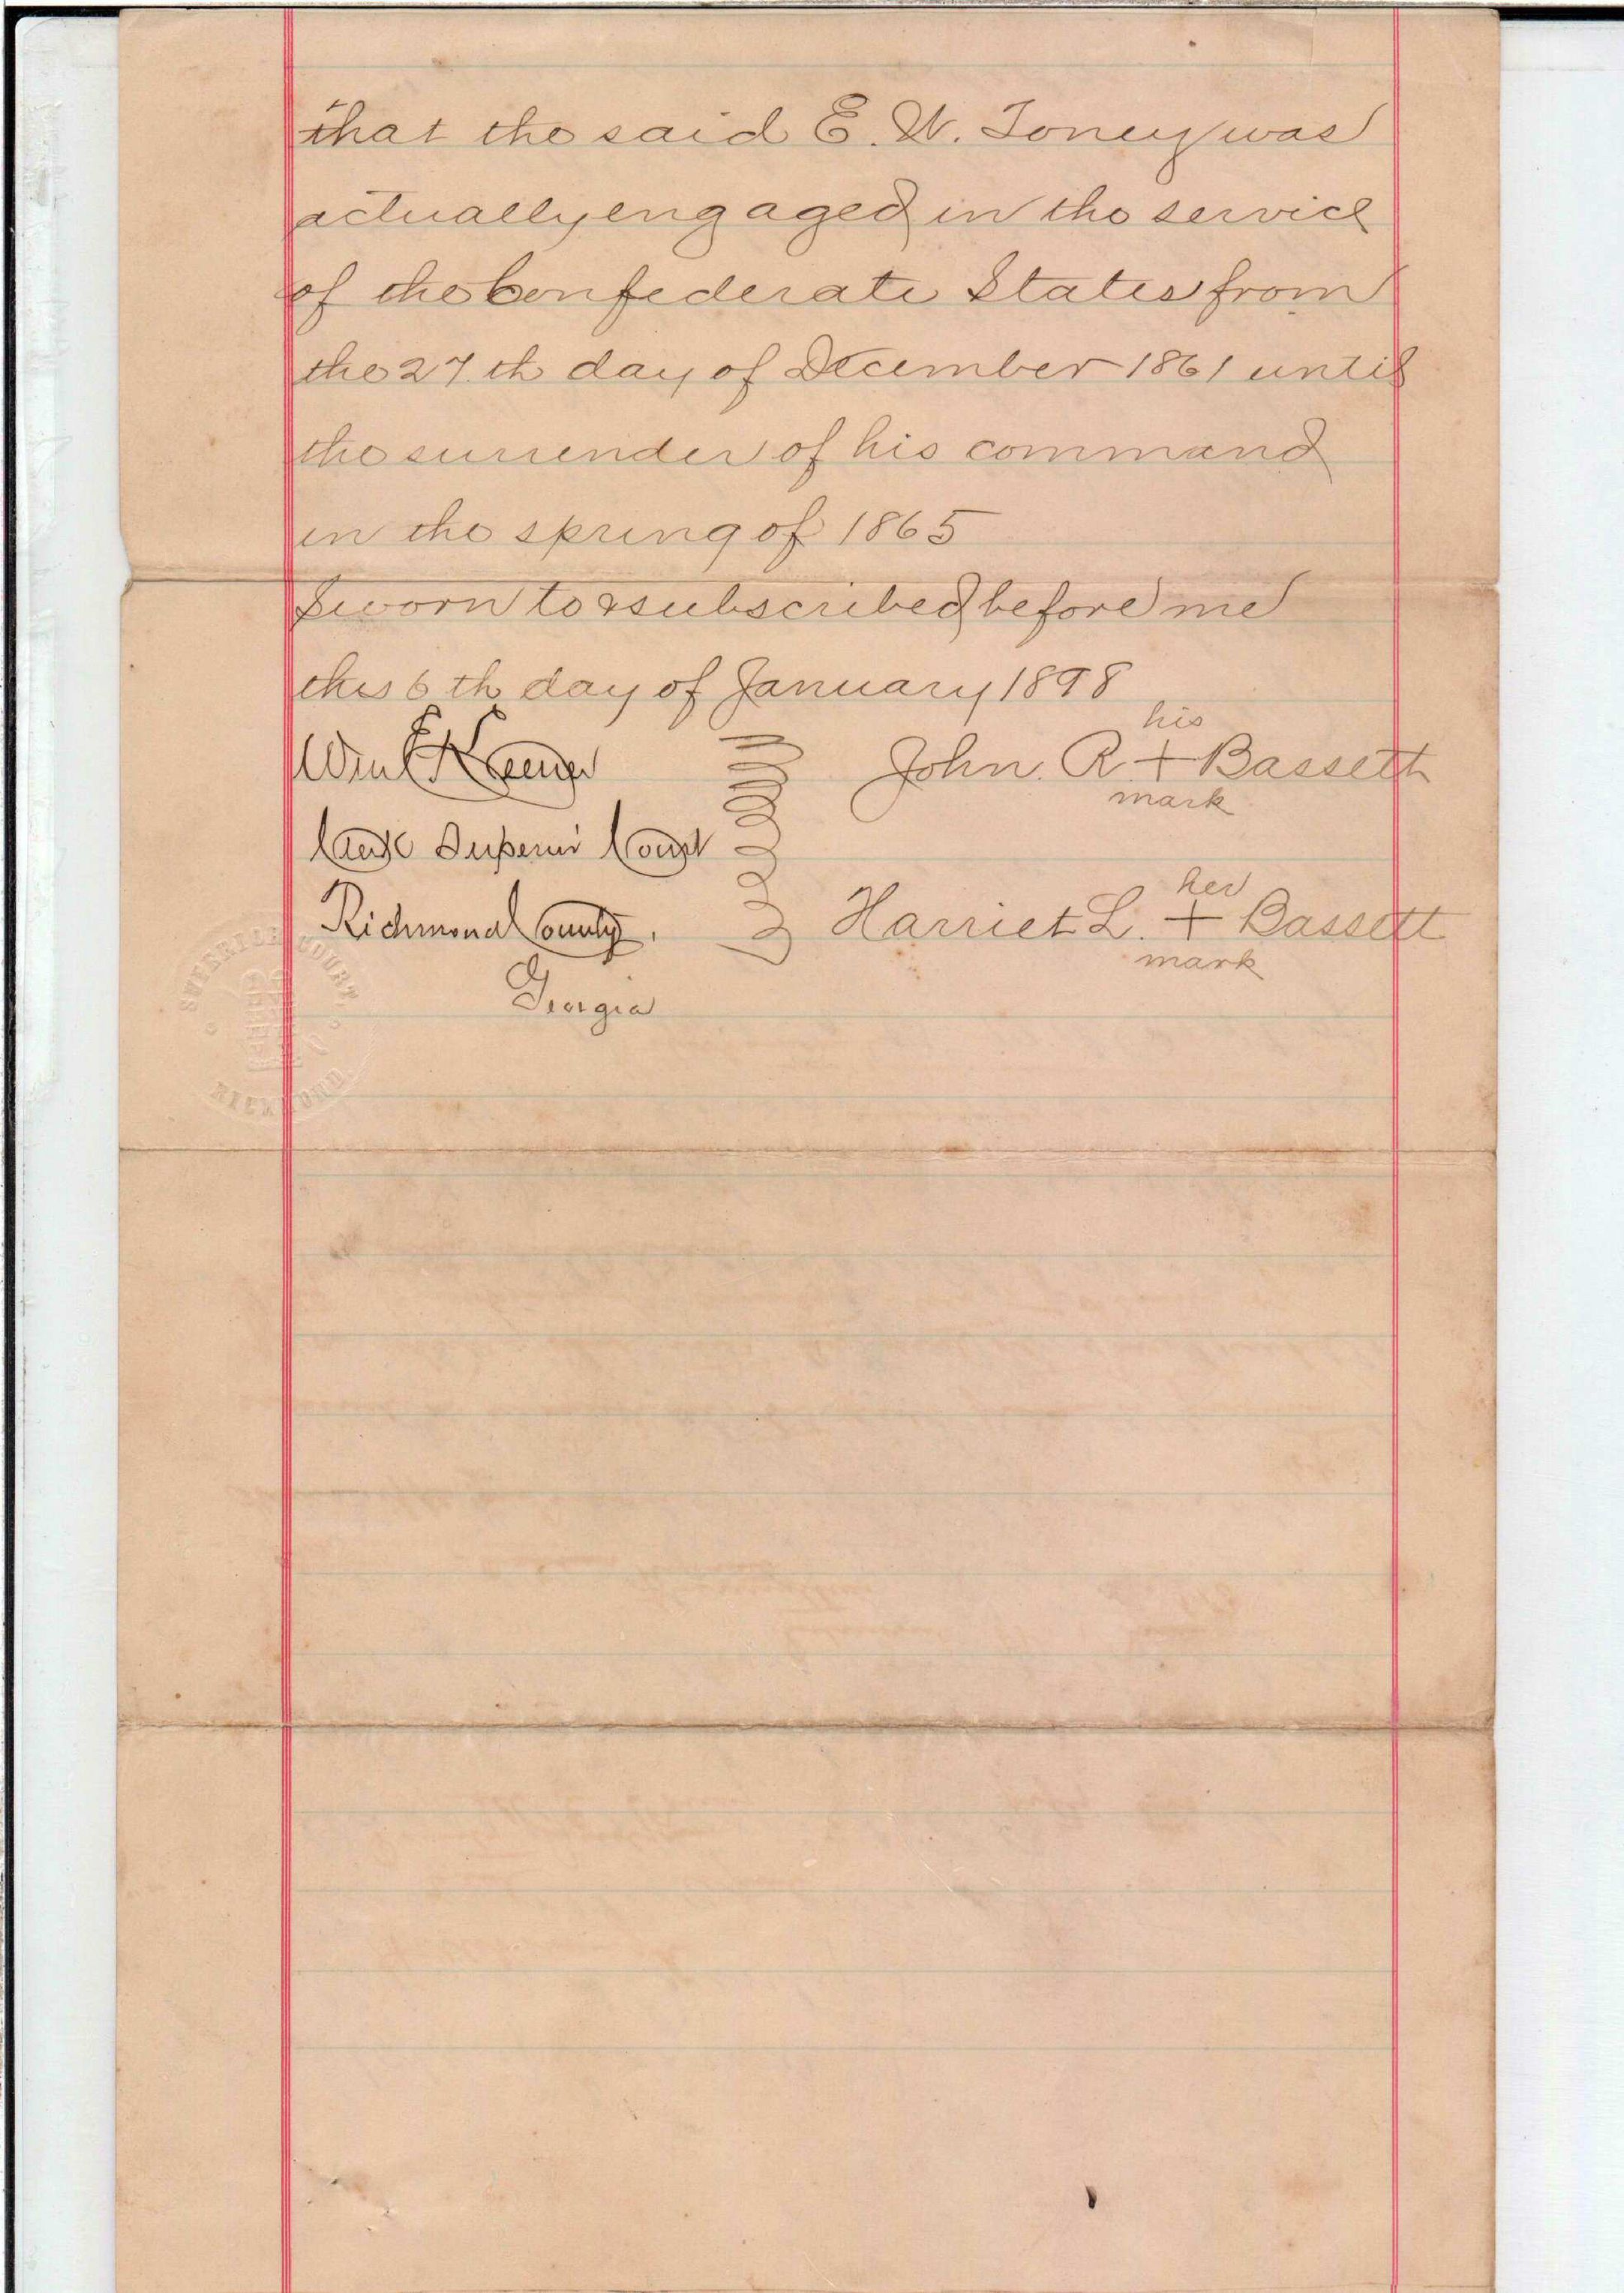 that the said E. W. Toney was
actually engaged in the service
of the Confederate States from
the 27th day of December 1861 until
the surrender of his command
in the spring of 1865
Sworn to & subscribed before me
this 6th day of January 1898
his
John. R + Bassett
mark
Clerk Superior Court
her
Richmond County, Harriet L. + Bassett
mark
Georgia
SUPERIOR COURT,
RICHMOND